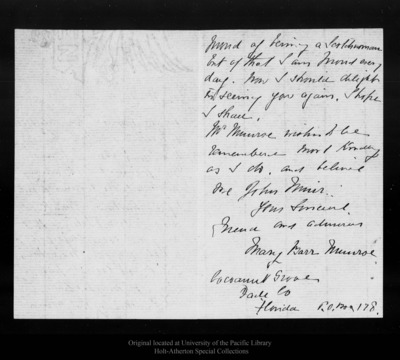 proud of being a Scotchwoman
but of that I am proud every
day. how I should delight
in seeing you again. I hope
I shall.
Mr Munroe wishes to be
remembered most kindly
as I do, and believe
me John Muir.
Your Sincere
friend and admirer
Mary Barr Munroe
Cocoanut Grove
Dade Co
Florida P.O. Box 178.
Original located at University of the Pacific Library
Holt-Atherton Special Collections